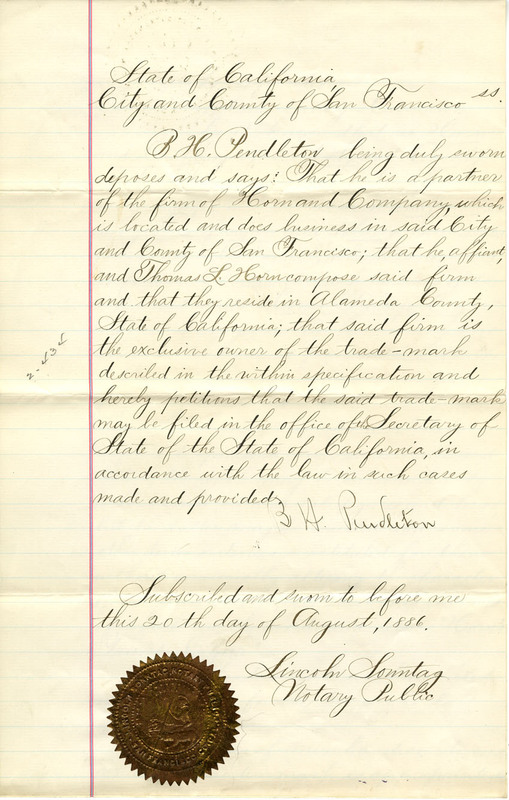 State of California,
City and County of San Francisco ss.
B H. Pendleton being duly sworn
deposes and says: That he is a partner
of the firm of Horn and Company, which
is located and does business in said City
and County of San Francisco; that he, affiant,
and Thomas L. Horn compose said firm
and that they reside in Alameda County,
State of California; that said firm is
the exclusive owner of the trade-mark
described in the within specification and
hereby petitions that the said trade-mark
may be filed in the office of Secretary of
State of the State of California, in
accordance with the law in such cases
made and provided
B H. Pendleton
Subscribed and sworn to before me
this 20th day of August, 1886.
Lincoln Sonntag
Notary Public
2.434